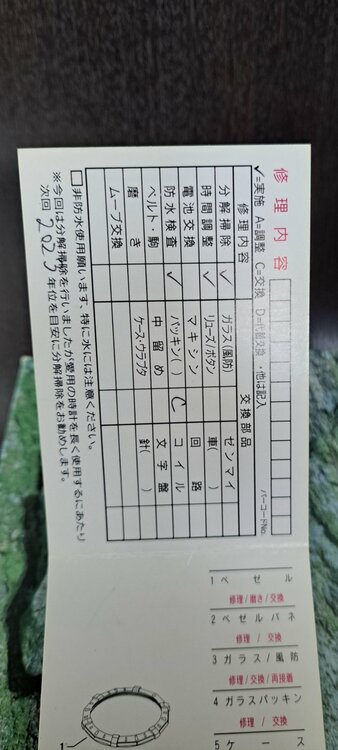 修理内容
✓=実施 A=調整 C=交換 D=代替交換 ・他は記入
バーコードNo.
修理内容 交換部品
分解掃除 ✓ ガラス(風防) ゼンマイ
時間調整 ✓ リューズ/ボタン 車( )
電池交換 マキシン 回路
防水検査 ✓ パッキン( ) C コイル
ベルト・駒 中留め 文字盤
磨き ケース・ウラブタ 針( )
ムーブ交換
□非防水使用願います。特に水には注意ください。
※今回は分解掃除を行いましたが愛用の時計を長く使用するにあたり
次回 2025 年位を目安に分解掃除をお勧めします。
1 ベゼル
修理/磨き/交換
2 ベゼルバネ
修理 / 交換
3 ガラス/風防
修理/交換/再接着
4 ガラスパッキン
修理 / 交換
5 ケース
1